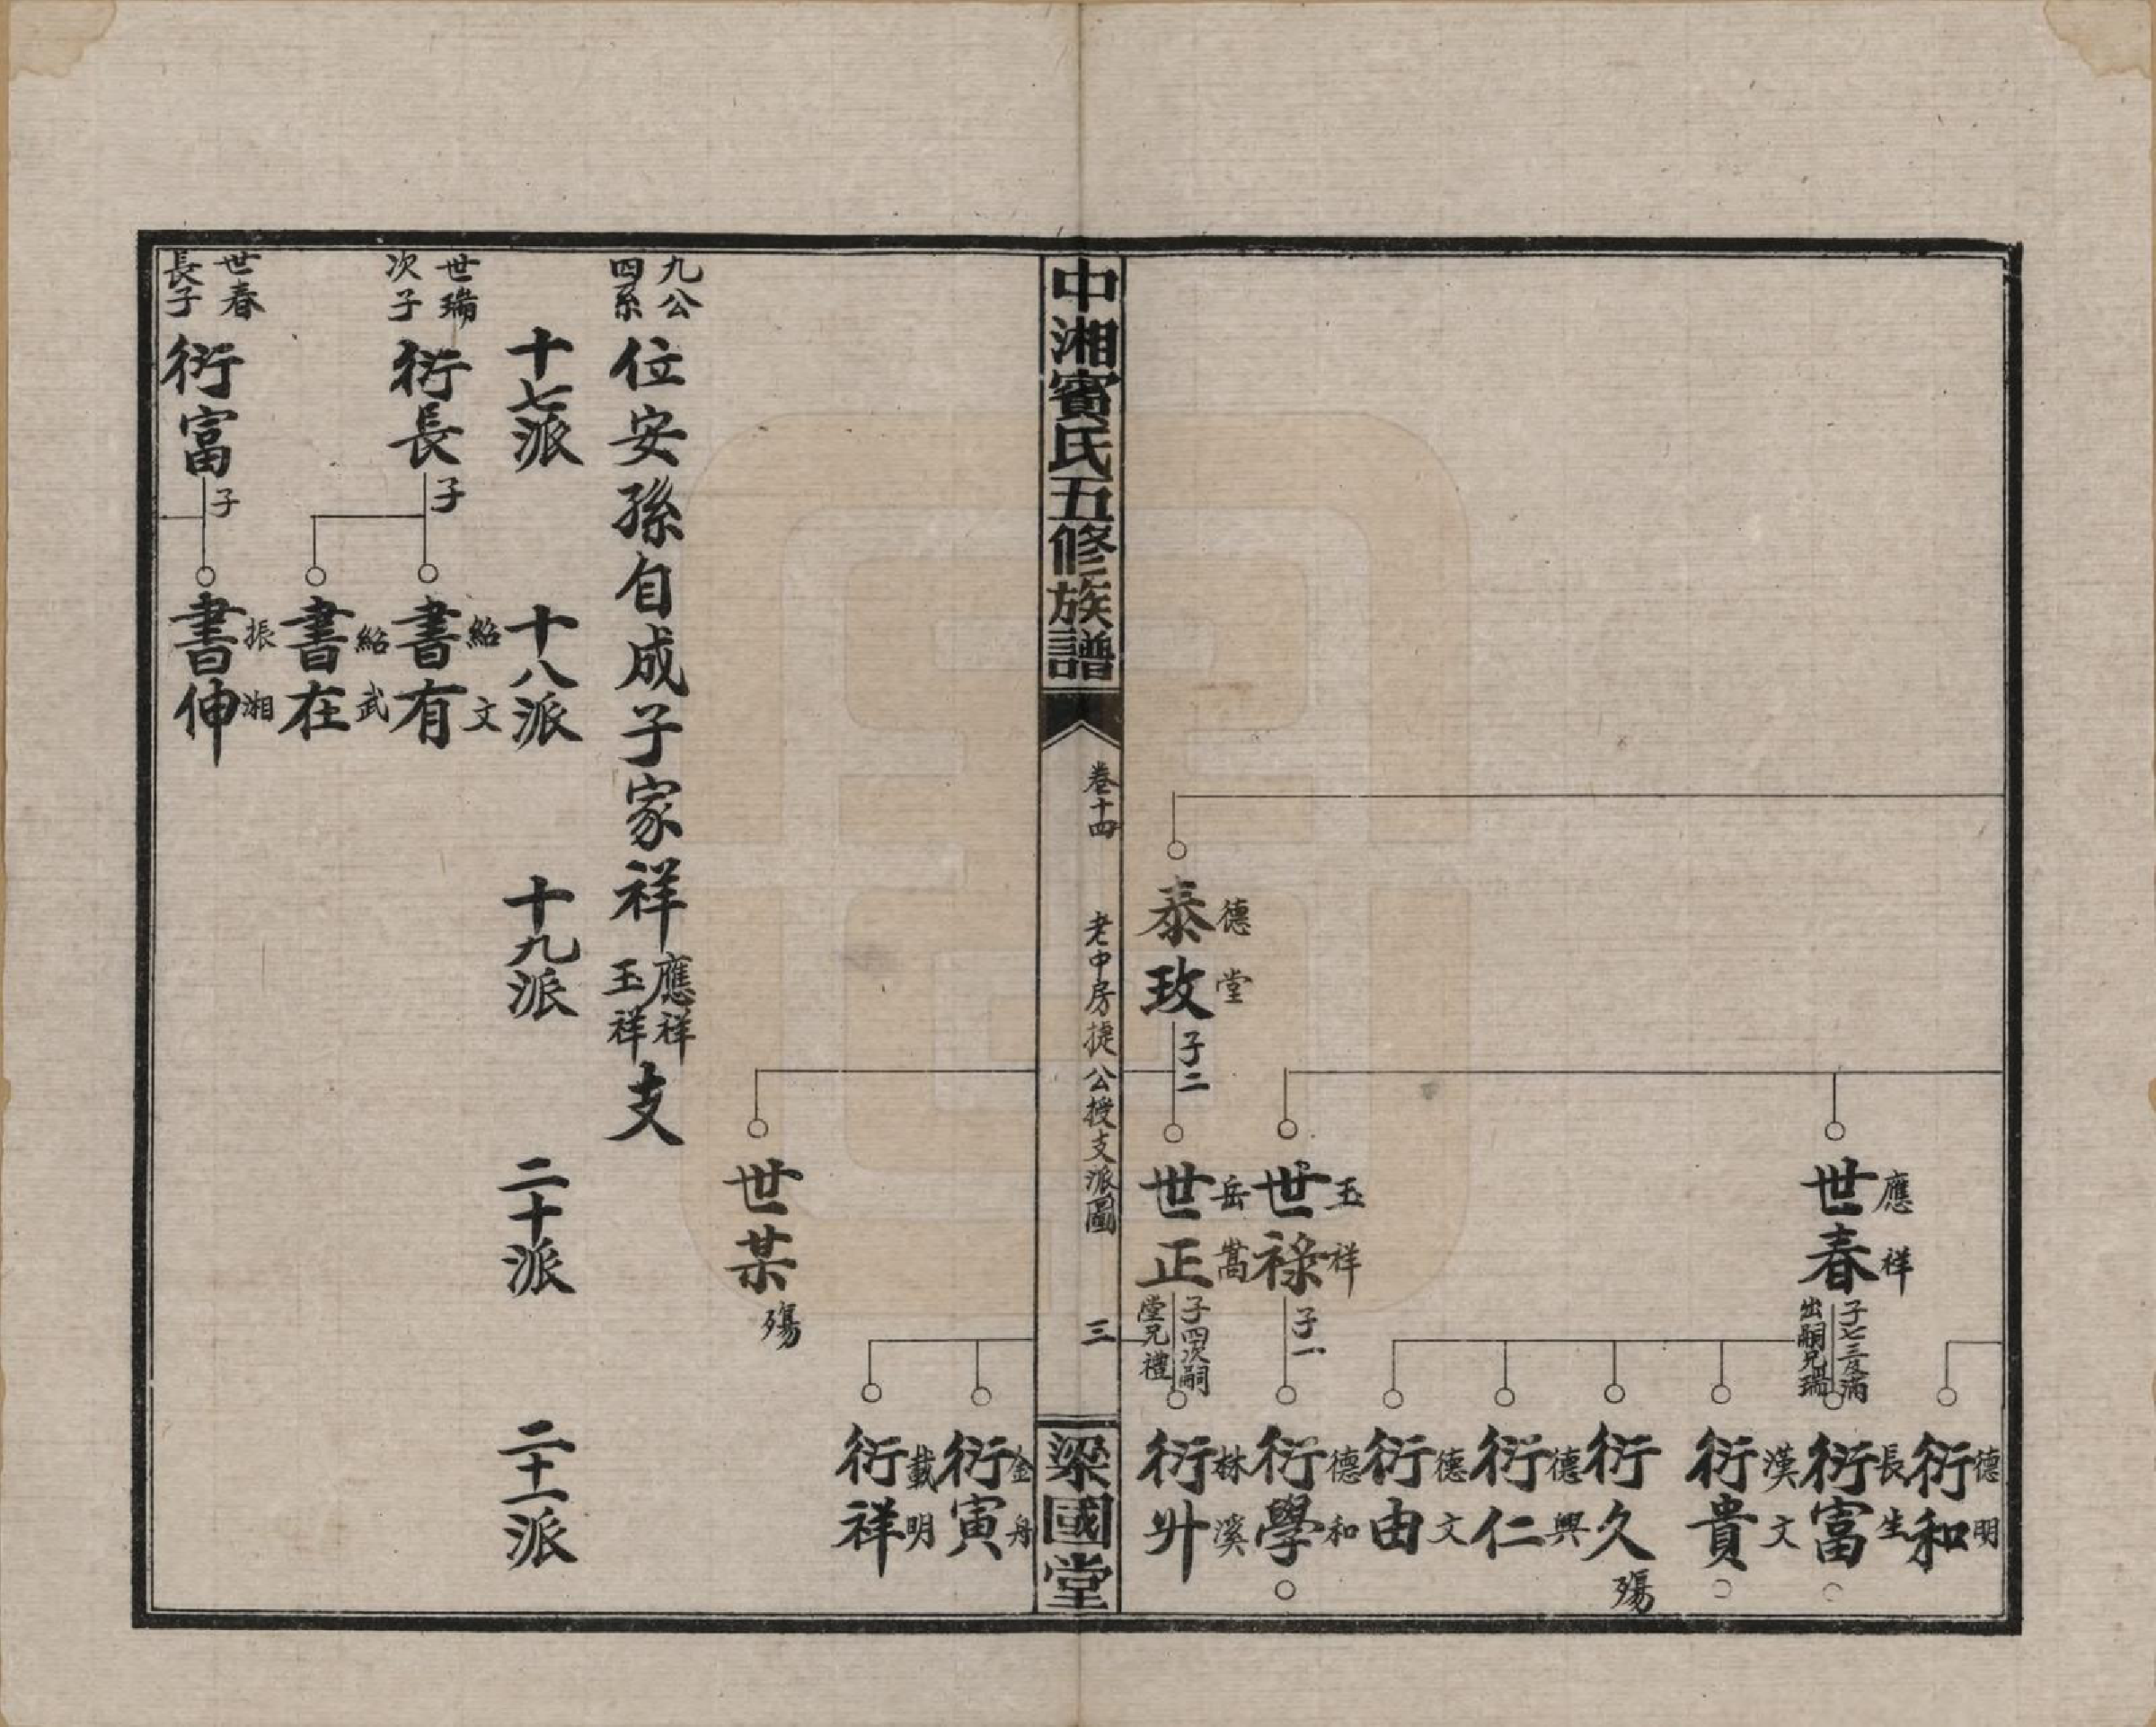 德明
衍和
應祥
世春
子七三及滿
出嗣兄瑞
長生
衍富
漢文
衍貴
衍久
殤
德興
衍仁
德文
衍由
玉祥
世祿
子一
德和
衍學
德堂
泰玫
子二
岳嵩
世正
子四次嗣
堂兄禮
林溪
衍升
中湘賓氏五修族譜
卷十四
老中房捷公授支派圖
三
梁國堂
金舟
衍寅
載明
衍祥
世某
殤
九公
四系
位安孫自成子家祥
應祥
玉祥
支
十七派
十八派
十九派
二十派
二十一派
世瑞
次子
衍長
子
紹文
書有
紹武
書在
世春
長子
衍富
子
振湘
書伸